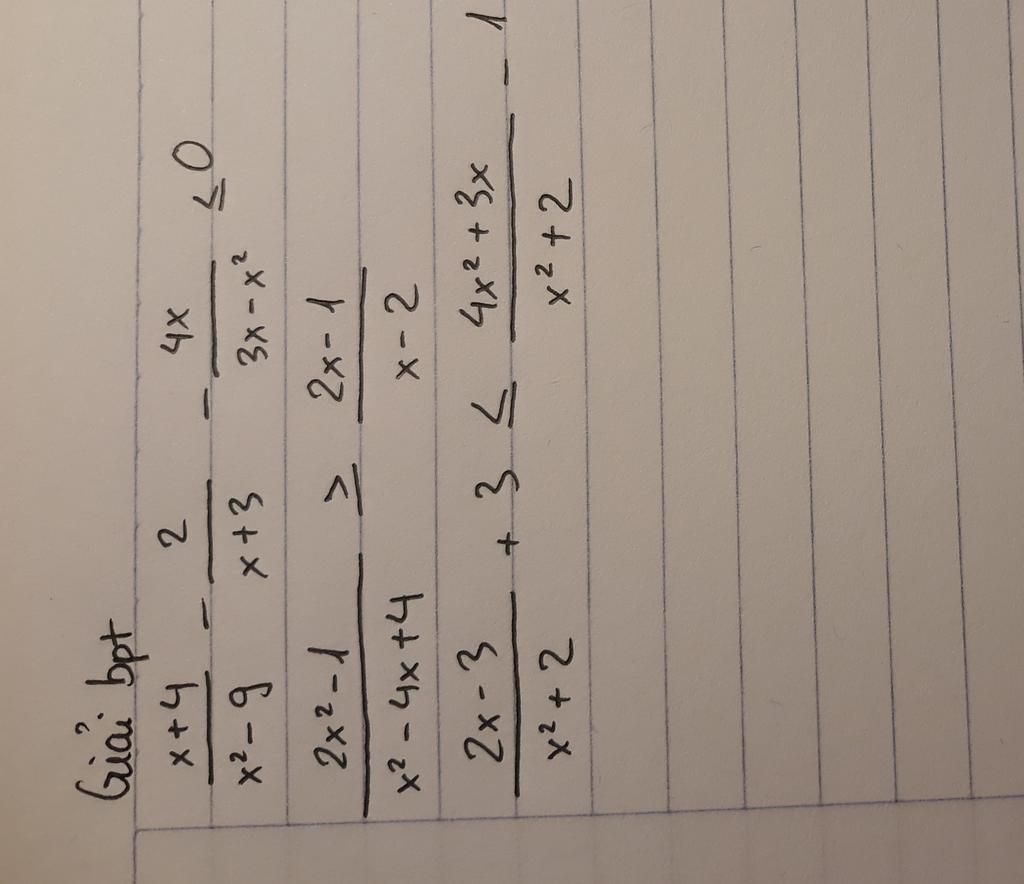 Giải bpt
(x+4)/(x² - 9) - 2/(x+3) - 4x/(3x - x²) ≤ 0
(2x² - 1)/(x² - 4x + 4) ≥ (2x - 1)/(x - 2)
(2x - 3)/(x² + 2) + 3 ≤ (4x² + 3x)/(x² + 2) - 1